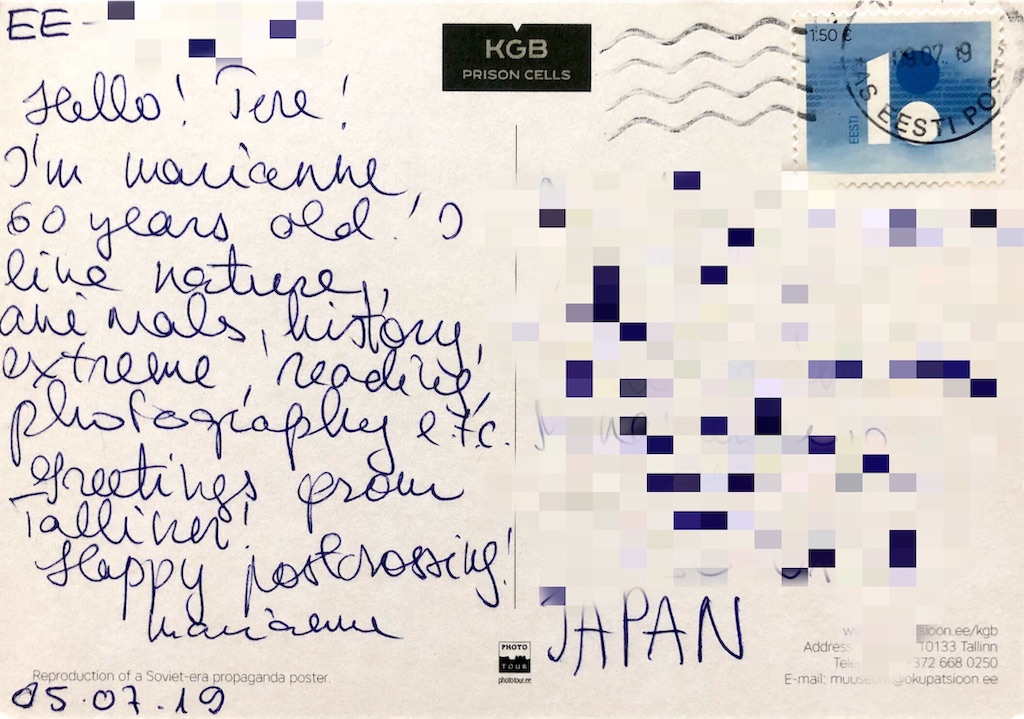 EE-
Hello! Tere!
I'm marianne,
60 years old! I
like nature,
animals, history,
extreme, reading,
photography etc.
Greetings from
Tallinn!
Happy postcrossing!
marianne
Reproduction of a Soviet-era propaganda poster.
05.07.19
KGB
PRISON CELLS
1.50 €
EESTI
18
09.07.19
AS EESTI POST
JAPAN
PHOTO
TOUR
phototour.ee
sioon.ee/kgb
Address 10133 Tallinn
372 668 0250
E-mail: muuseum@okupatsioon.ee